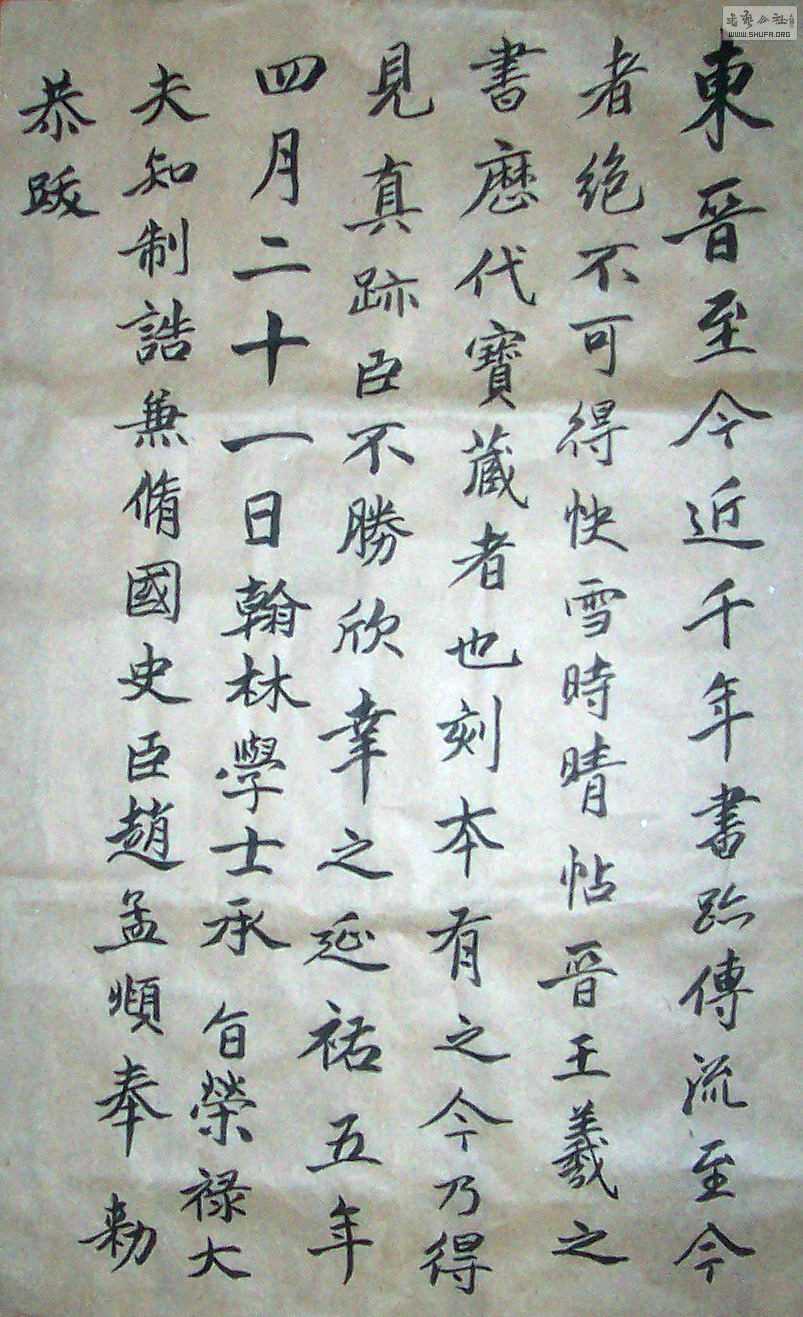 東晋至今近千年書跡傳流至今
者绝不可得快雪時晴帖晋王羲之
書歷代寶蔵者也刻本有之今乃得
見真跡臣不勝欣幸之延祐五年
四月二十一日翰林學士承旨榮禄大
夫知制誥兼脩國史臣趙孟頫奉勅
恭跋
WWW.SHUFA.ORG